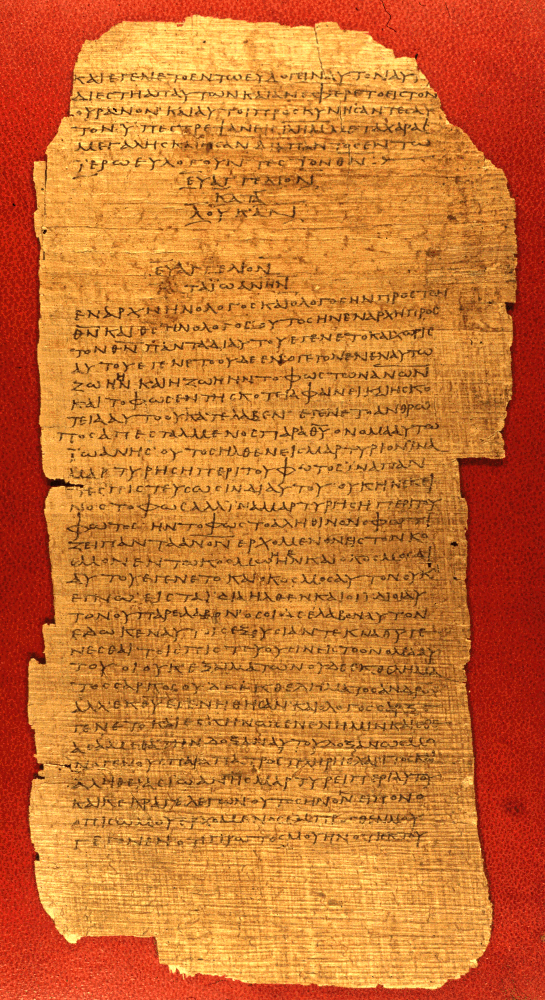 ΚΑΙΕΓΕΝΕΤΟΕΝΤΩΕΥΛΟΓΕΙΝΑΥΤΟΝΑΥ
ΔΙΕϹΤΗΑΠΑΥΤΩΝΚΑΙΑΝΕΦΕΡΕΤΟΕΙϹΤΟΝ
ΟΥΡΑΝΟΝΚΑΙΑΥΤΟΙΠΡΟϹΚΥΝΗϹΑΝΤΕϹΑΥ
ΤΟΝΥΠΕϹΤΡΕΨΑΝΕΙϹ ΜΕΤΑΧΑΡΑϹ
ΜΕΓΑΛΗϹΚΑΙΗϹΑΝ ΕΝΤΩ
ΪΕΡΩΕΥΛΟΓΟΥΝΤΕϹΤΟΝΘΝ
ΕΥΑΓΓΕΛΙΟΝ
ΚΑΤΑ
ΛΟΥΚΑΝ
ΕΥΑΓΓΕΛΙΟΝ
ΚΑΤΑΪΩΑΝΗΝ
ΕΝΑΡΧΗΗΝΟΛΟΓΟϹΚΑΙΟΛΟΓΟϹΗΝΠΡΟϹΤΟΝ
ΘΝΚΑΙΘϹΗΝΟΛΟΓΟϹΟΥΤΟϹΗΝΕΝΑΡΧΗΠΡΟϹ
ΤΟΝΘΝΠΑΝΤΑΔΙΑΥΤΟΥΕΓΕΝΕΤΟΚΑΙΧΩΡΙϹ
ΑΥΤΟΥΕΓΕΝΕΤΟΟΥΔΕΕΝΟΓΕΓΟΝΕΝΕΝΑΥΤΩ
ΖΩΗΗΝΚΑΙΗΖΩΗΗΝΤΟΦΩϹΤΩΝΑΝΩΝ
ΚΑΙΤΟΦΩϹΕΝΤΗϹΚΟΤΕΙΑΦΑΙΝΕΙΚΑΙΗϹΚΟ
ΤΕΙΑΑΥΤΟΟΥΚΑΤΕΛΑΒΕΝΕΓΕΝΕΤΟΑΝΘΡΩ
ΠΟϹΑΠΕϹΤΑΛΜΕΝΟϹΠΑΡΑΘΥΟΝΟΜΑΑΥΤΩ
ΪΩΑΝΗϹΟΥΤΟϹΗΛΘΕΝΕΙϹΜΑΡΤΥΡΙΟΝΪΝΑ
ΜΑΡΤΥΡΗϹΗΠΕΡΙΤΟΥΦΩΤΟϹΪΝΑΠΑΝ
ΤΕϹΠΙϹΤΕΥϹΩϹΙΝΔΙΑΥΤΟΥΟΥΚΗΝΕΚΕΙ
ΝΟϹΤΟΦΩϹΑΛΛΪΝΑΜΑΡΤΥΡΗϹΗΠΕΡΙΤΟΥ
ΦΩΤΟϹΗΝΤΟΦΩϹΤΟΑΛΗΘΙΝΟΝΟΦΩΤΙ
ΖΕΙΠΑΝΤΑΑΝΟΝΕΡΧΟΜΕΝΟΝΕΙϹΤΟΝΚΟ
ϹΜΟΝΕΝΤΩΚΟϹΜΩΗΝΚΑΙΟΚΟϹΜΟϹΔΙ
ΑΥΤΟΥΕΓΕΝΕΤΟΚΑΙΟΚΟϹΜΟϹΑΥΤΟΝΟΥΚ
ΕΓΝΩΕΙϹΤΑΪΔΙΑΗΛΘΕΝΚΑΙΟΙΪΔΙΟΙΑΥ
ΤΟΝΟΥΠΑΡΕΛΑΒΟΝΟϹΟΙΔΕΕΛΑΒΟΝΑΥΤΟΝ
ΕΔΩΚΕΝΑΥΤΟΙϹΕΞΟΥϹΙΑΝΤΕΚΝΑΘΥΓΕ
ΝΕϹΘΑΙΤΟΙϹΠΙϹΤΕΥΟΥϹΙΝΕΙϹΤΟΟΝΟΜΑΑΥ
ΤΟΥΟΙΟΥΚΕΞΑΙΜΑΤΩΝΟΥΔΕΕΚΘΕΛΗΜΑ
ΤΟϹϹΑΡΚΟϹΟΥΔΕΕΚΘΕΛΗΜΑΤΟϹΑΝΔΡΟϹ
ΑΛΛΕΚΘΥΕΓΕΝΗΘΗϹΑΝΚΑΙΟΛΟΓΟϹϹΑΡΞΕ
ΓΕΝΕΤΟΚΑΙΕϹΚΗΝΩϹΕΝΕΝΗΜΙΝΚΑΙΕΘΕ
ΑϹΑΜΕΘΑΤΗΝΔΟΞΑΝΑΥΤΟΥΔΟΞΑΝΩϹΜΟ
ΝΟΓΕΝΟΥϹΠΑΡΑΠΑΤΡΟϹΠΛΗΡΗϹΧΑΡΙΤΟϹΚΑΙ
ΑΛΗΘΕΙΑϹΪΩΑΝΗϹΜΑΡΤΥΡΕΙΠΕΡΙΑΥΤΟΥ
ΚΑΙΚΕΚΡΑΓΕΛΕΓΩΝΟΥΤΟϹΗΝΟΝΕΙΠΟΝΟ
ΟΠΙϹΩΜΟΥΕΡΧΟΜΕΝΟϹΕΜΠΡΟϹΘΕΝΜΟΥ
ΓΕΓΟΝΕΝΟΤΙΠΡΩΤΟϹΜΟΥΗΝΟΤΙΕΚΤΟΥ